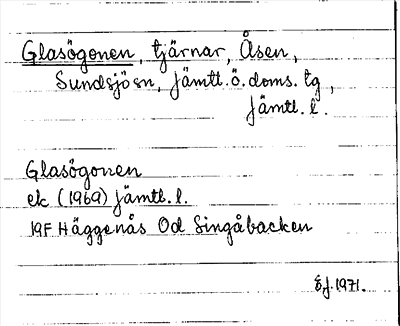 Glasögonen, tjärnar, Åsen,
Sundsjö sn, Jämtl. ö. doms. tg,
Jämtl. l.
Glasögonen
ek (1969) Jämtl. l.
19F Häggenås Od Singåbacken
Ej. 1971.